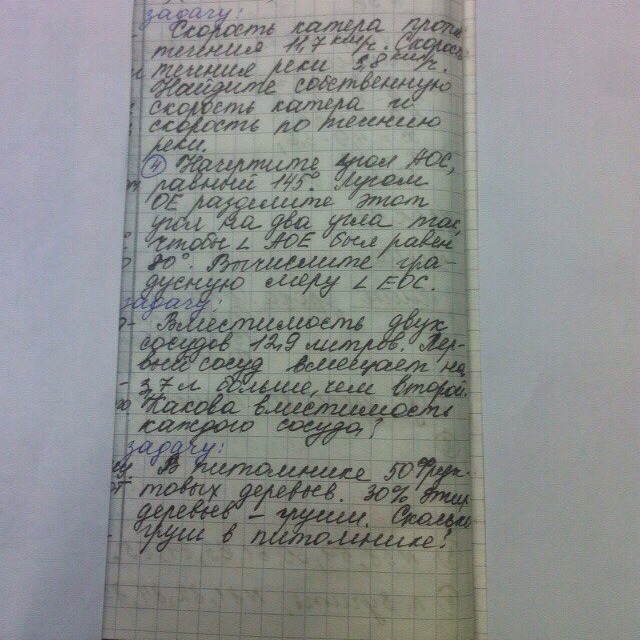 задачу:
Скорость катера проти
течения 11,7 км/ч. Скорос
течение реки 3,8 км/ч.
Найдите собственную
скорость катера и
скорость по течению
реки.
④ Начертите угол АОС,
равный 145°. Лучом
ОЕ разделите этот
угол на два угла так,
чтобы ∠ АОЕ был равен
80°. Вычислите гра-
дусную меру ∠ ЕОС.
задачу:
Вместимость двух
сосудов 12,9 литров. Пер-
вый сосуд вмещает на
3,7 л больше, чем второй.
Какова вместимость
каждого сосуда?
задачу:
В питомнике 50 фрук-
товых деревьев. 30% этих
деревьев - груши. Сколько
груш в питомнике?